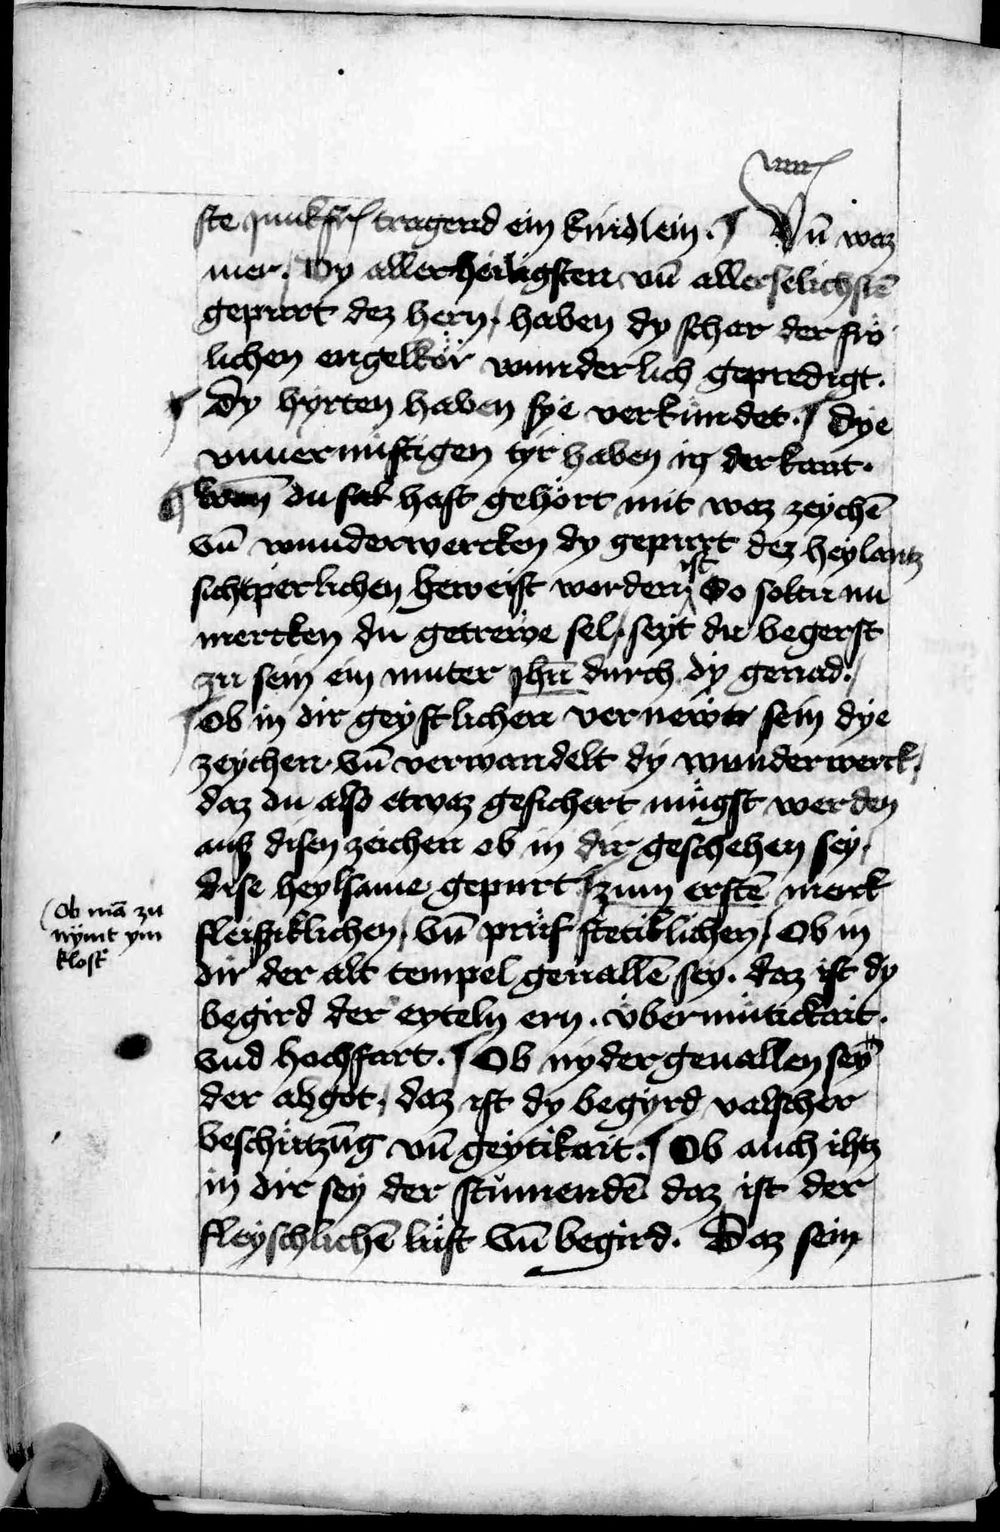 ste junkfr tragend ein kindlein. Vn̄ waz
mer. Dy allerheiligsten vn̄ allerselichstē
gepurt dez hern, haben dy schar der frö
lichen engelkör wunderlich gepredigt.
Dy hyrten haben sye verkundet. Dye
vnuernüftigen tyr haben in derkant.
Wan̄ du hast gehört mit waz zeychē
vn̄ wunderwercken dy gepurt dez heylantz
sichtperlichen beweist worden ist So soltu nu
mercken du getrewe sel, seyt du begerst
zu sein ein muter Jhū durch dy genad.
Ob in dir geystlichen vernewt sein dye
zeychen vn̄ verwandelt dy wunderwerck,
daz du also etwaz gesichert mügst werden
auß disen zeichen ob in dir geschehen sey,
dise heylsame gepurt zum erstē merck
Ob mā zu
nymt ym
klost
fleißiklichen, vn̄ prüf stetiklichen, Ob in
dir der alt tempel geuallē sey. daz ist dy
begird der eyteln ern. übermütickait.
vnd hochfart. Ob nyder geuallen sey
der abgot, daz ist dy begyrd valscher
beschützūg vn̄ geytikait. Ob auch ihtz
in dir sey der stumendē daz ist der
fleyschlichē lüst vn̄ begird. Daz sein